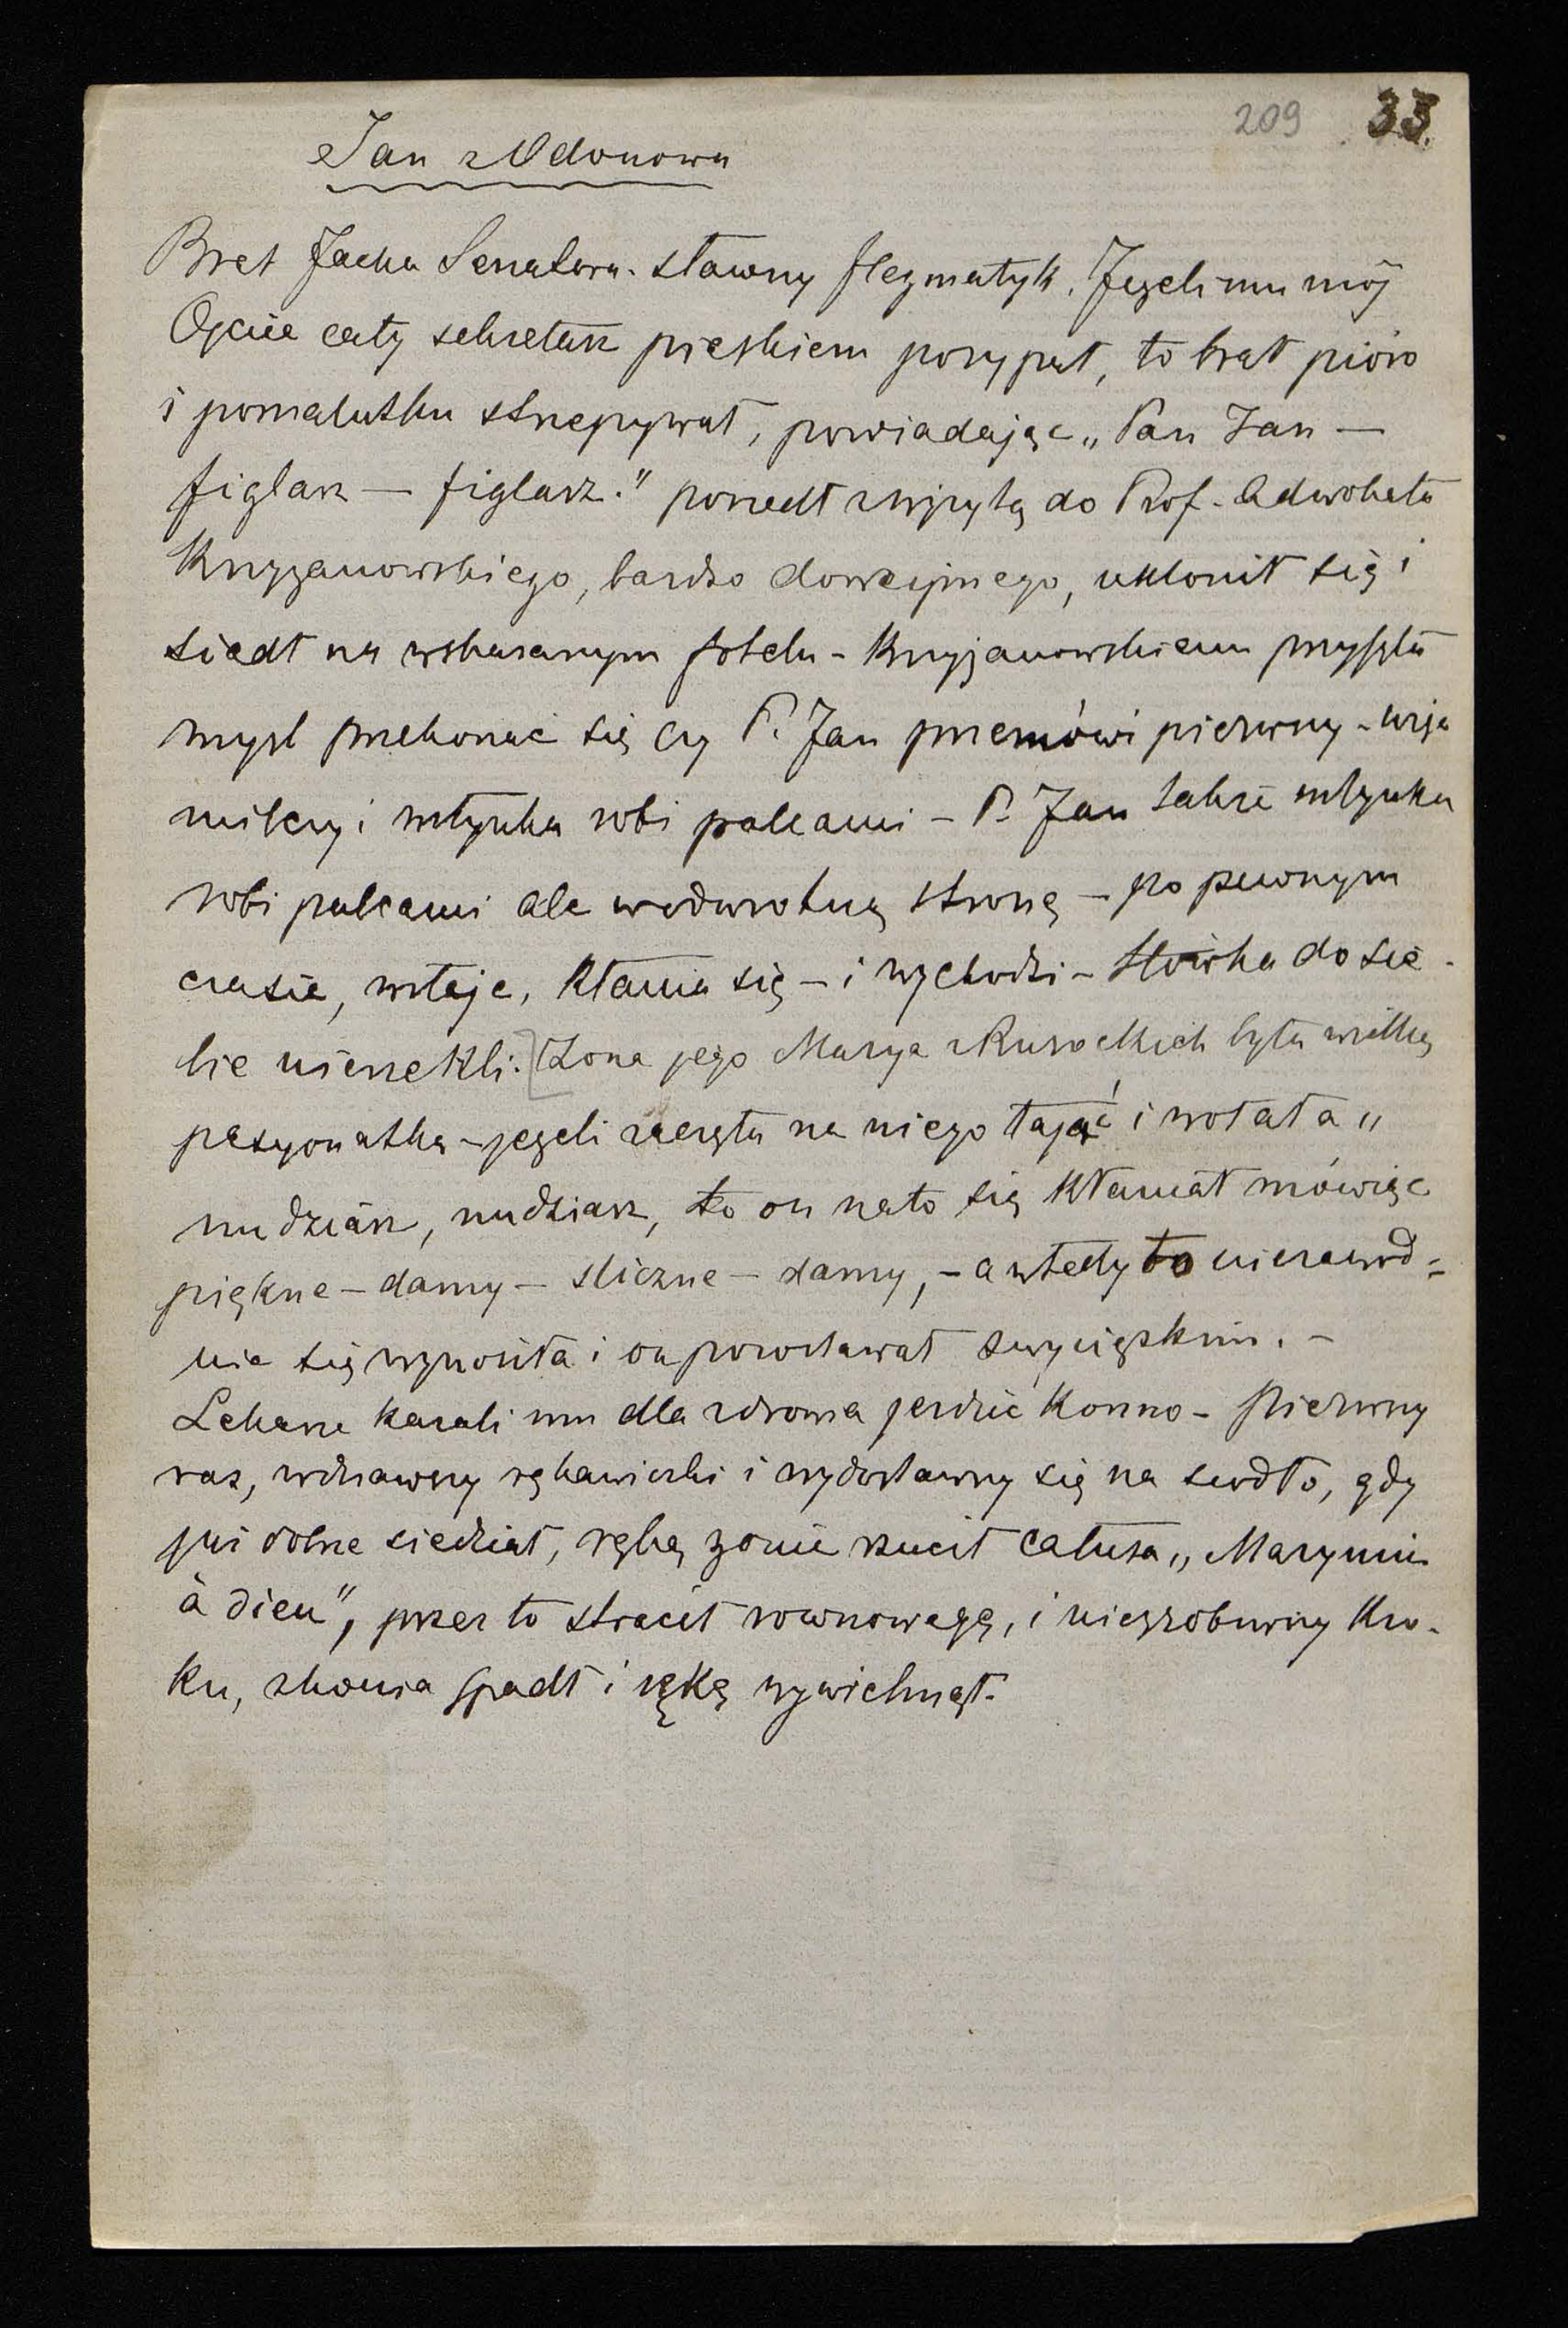 209 33.
Jan z Odonowa
Brat Jacka Senatora. sławny flegmatyk. Jeżeli mu mój
Ojciec cały sekretarz pieskiem posypał, to brał pióro
i pomalutku strzepywał, powiadając „Pan Jan —
figlarz — figlarz." poszedł z wizytą do Prof. Adwokata
Krzyżanowskiego, bardzo dowcipnego, ukłonił się i
siadł na wskazanym fotelu - Krzyżanowskiemu przyszła
myśl przekonać się czy P. Jan przemówi pierwszy -
milczy i młynka robi palcami - P. Jan także młynka
robi palcami ale w odwrotną stronę - po pewnym
czasie, wstaje, kłania się - i wychodzi - Słówka do sie-
bie nie rzekli. [Żona jego Marya z Russockich była wielką
pasyonatką - jeżeli zaczęła na niego łajać i wołała „
nudziarz, nudziarz, to on na to się kłaniał mówiąc
piękne - damy - śliczne - damy, - a wtedy to niezawod=
nie się wynosiła i on pozostawał zwycięzkim. -
Lekarze kazali mu dla zdrowia jeździć konno - pierwszy
raz, wdziawszy rękawiczki i wydostawszy się na siodło, gdy
już dobrze siedział, ręką żonie rzucił całusa „Maryniu
à dieu", przez to stracił równowagę, i nie zrobiwszy kro-
ku, z konia spadł i rękę wywichnął.